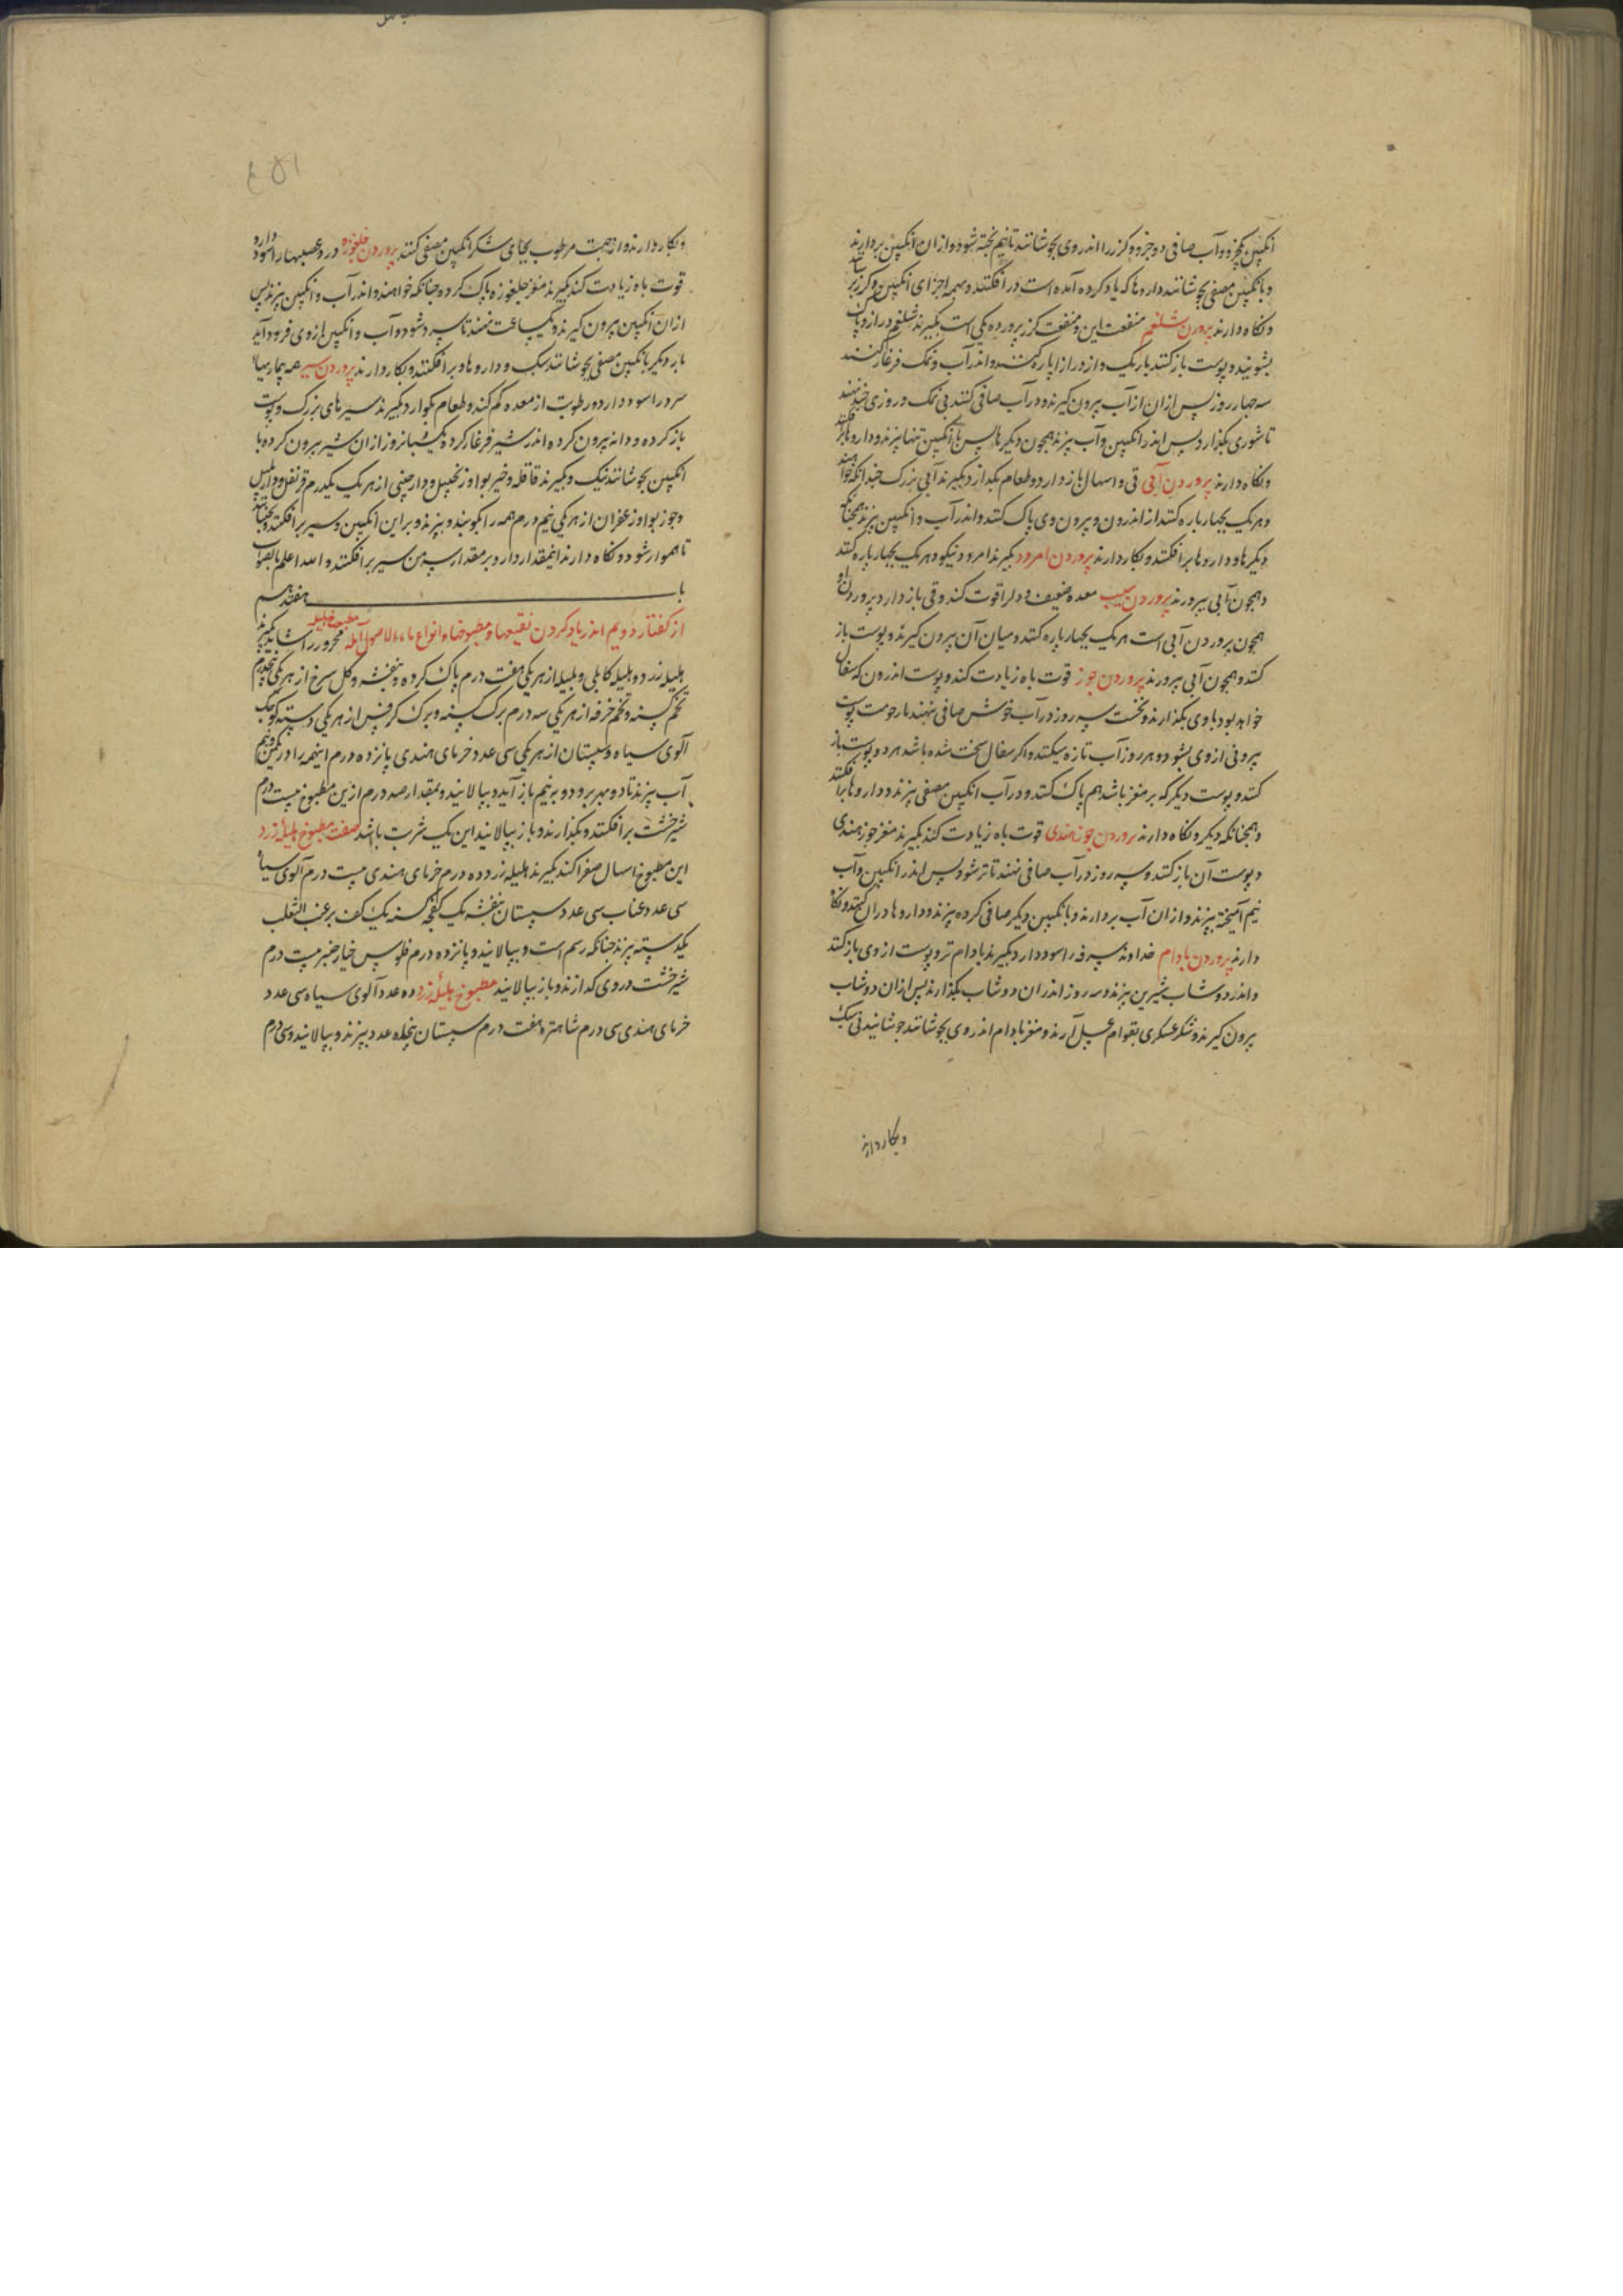 انکبین یکجزو و آب صافی دو جزو و کزر را اندر وی بجوشانند تا نیم پخته شود و از ان انکبین بردارند
و بانکبین مصفی بجوشانند و داروها که یاد کرده آمده است در افکنند و همه اجزای انکبین و کزر
و نکاه دارند پروردن شلغم منفعت این و منفعت کزر پرورده یکی است بکیرند شلغم دراز و پاک
بشویند و پوست باز کنند باریک و از درازا پاره کنند و اندر آب و نمک فرغار کنند
سه چهار روز پس از ان از آب بیرون کیرند و در آب صافی کنند بی نمک و روزی چند نهند
تا شوری بکذارد پس اندر انکبین و آب بپزند همچون دیکرها پس با انکبین تنها بپزند و داروها بر افکنند
و نکاه دارند پروردن آبی قی و اسهال باز دارد و طعام بکذارد بکیرند آبی بزرک چندانکه خواهند
و هر یک بچهار پاره کنند از اندرون و بیرون وی پاک کنند و اندر آب و انکبین بپزند همچنانکه
دیکرها و داروها بر افکنند و بکار دارند پروردن امرود بکیرند امرود نیکو و هر یک بچهار پاره کنند
و همچون آبی بپرورند پروردن سیب معده ضعیف و دل را قوت کند و قی باز دارد و پروردن او
همچون پروردن آبی است هر یک بچهار پاره کنند و میان آن بیرون کیرند و پوست باز
کنند و همچون آبی بپرورند پروردن جوز قوت باه زیادت کند و پوست اندرون که سفال
خواهد بود با وی بکذارند و نخست سه روز در آب خوش صافی نهند تا پوست
بیرونی از وی بشود و هر روز آب تازه میکنند و اکر سفال سخت شده باشد هر دو پوست باز
کنند و پوست دیکر که بر مغز باشد هم پاک کنند و در آب انکبین مصفی بپزند و داروها بر افکنند
و همچنانکه دیکر و نکاه دارند پروردن جوز هندی قوت باه زیادت کند بکیرند مغز جوز هندی
و پوست آن باز کنند و سه روز در آب صافی نهند تا تر شود پس اندر انکبین و آب
نیم آمیخته بپزند و از ان آب بردارند و بانکبین دیکر صافی کرده بپزند و داروها در ان کنند و نکاه
دارند پروردن بادام خداوند سرفه را سود دارد بکیرند بادام تر و پوست از وی باز کنند
و اندر دوشاب شیرین بپزند و سه روز اندر ان دوشاب بکذارند پس از ان دوشاب
بیرون کیرند و شکر عسکری بقوام عسل آرند و مغز بادام اندر وی بجوشانند جوشانیدنی سبک
و بکار دارند
و بکار دارند و از جهت مرطوب بجای شکر انکبین مصفی کنند پروردن جلغوزه درد عصبها را سود دارد
قوت باه زیادت کند بکیرند مغز جلغوزه پاک کرده چنانکه خواهند و اندر آب و انکبین بپزند پس
از ان انکبین بیرون کیرند و یکساعت نهند تا سرد شود و آب و انکبین از وی فرود آید
بار دیکر بانکبین مصفی بجوشانند سبک و داروها بر افکنند و بکار دارند پروردن سیر همه بیماریها
سرد را سود دارد و رطوبت از معده کم کند و طعام بکوارد بکیرند سیرهای بزرک و پوست
باز کرده و دانه بیرون کرده اندر شیر فرغار کرده یک شبانروز از ان شیر بیرون کرده با
انکبین بجوشانند نیک و بکیرند قاقله و خیربوا و زنجبیل و دارچینی از هر یک یکدرم قرنفل و دارپلپل
و جوزبوا و زعفران از هر یکی نیم درم همه را بکوبند و بپزند و بر این انکبین و سیر بر افکنند و بجنبانند
تا هموار شود و نکاه دارند اینمقدار دارو بر مقدار سه من سیر بر افکنند و الله اعلم بالصواب
باب هفتدهم
از کفتار دویم اندر یاد کردن نقیعها و مطبوخها و انواع ماء الاصول مطبوخ هلیله محرور را شاید بکیرند
هلیله زرد و هلیله کابلی و بلیله از هر یکی هفت درم پاک کرده و بنفشه و کل سرخ از هر یکی پنجدرم
تخم کسنه و تخم خرفه از هر یکی سه درم برک کسنه و برک کرفس از هر یکی دسته کوچک
آلوی سیاه و سپستان از هر یکی سی عدد خرمای هندی پانزده درم اینهمه را در یکمن و نیم
آب بپزند تا دو بهر برود و به نیم باز آید و بپالانید و بمقدار صد درم ازین مطبوخ بیست درم
شیرخشت بر افکنند و بکذارند و باز بپالانید این یک شربت باشد صفت مطبوخ هلیله زرد
این مطبوخ اسهال صفرا کند بکیرند هلیله زرد ده درم خرمای هندی بیست درم آلوی سیاه
سی عدد عناب سی عدد سپستان بنفشه یک کفجه کسنه یک کف بر عنب الثعلب
یکدسته بپزند چنانکه رسم است و بپالانید و پانزده درم فلوس خیارچنبر بیست درم
شیرخشت در وی کدازند و باز بپالانید مطبوخ هلیله زرد ده عدد آلوی سیاه سی عدد
خرمای هندی سی درم شاهتره هفت درم سپستان پنجاه عدد بپزند و بپالانید و سی درم